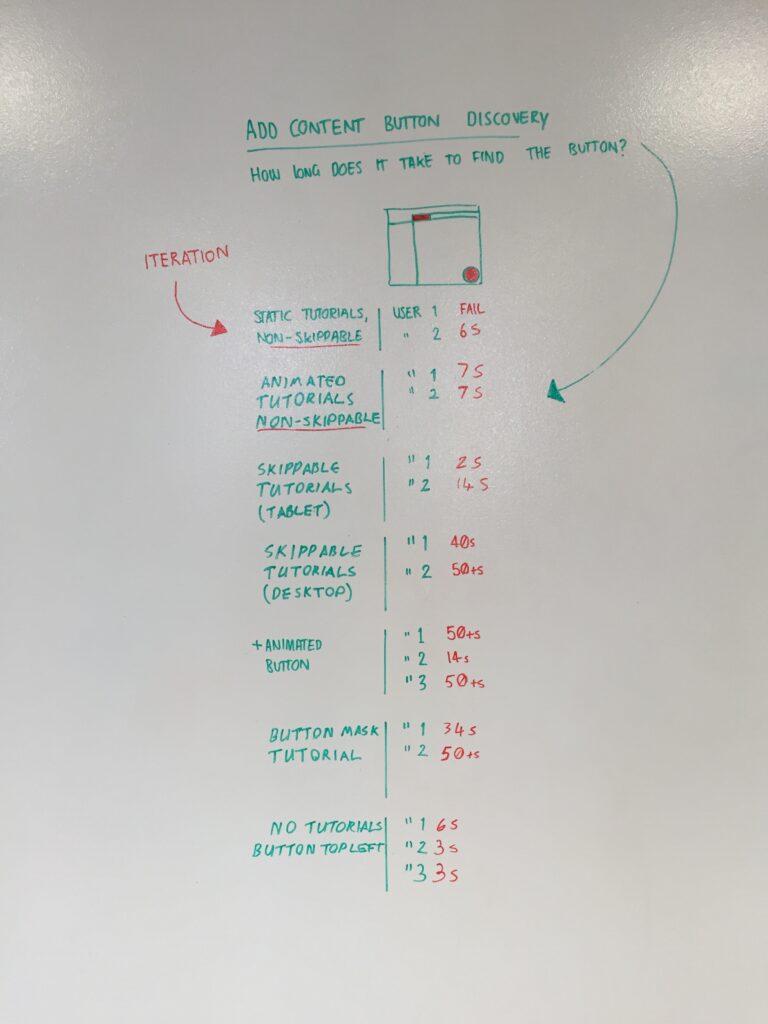 ADD CONTENT BUTTON DISCOVERY
HOW LONG DOES IT TAKE TO FIND THE BUTTON?
ITERATION
STATIC TUTORIALS, USER 1 FAIL
NON-SKIPPABLE " 2 6S
ANIMATED " 1 7S
TUTORIALS " 2 7S
NON-SKIPPABLE
SKIPPABLE " 1 2S
TUTORIALS " 2 14S
(TABLET)
SKIPPABLE " 1 40s
TUTORIALS " 2 50+s
(DESKTOP)
+ ANIMATED " 1 50+s
BUTTON " 2 14s
" 3 50+s
BUTTON MASK " 1 34s
TUTORIAL " 2 50+s
NO TUTORIALS " 1 6s
BUTTON TOP LEFT " 2 3s
" 3 3s